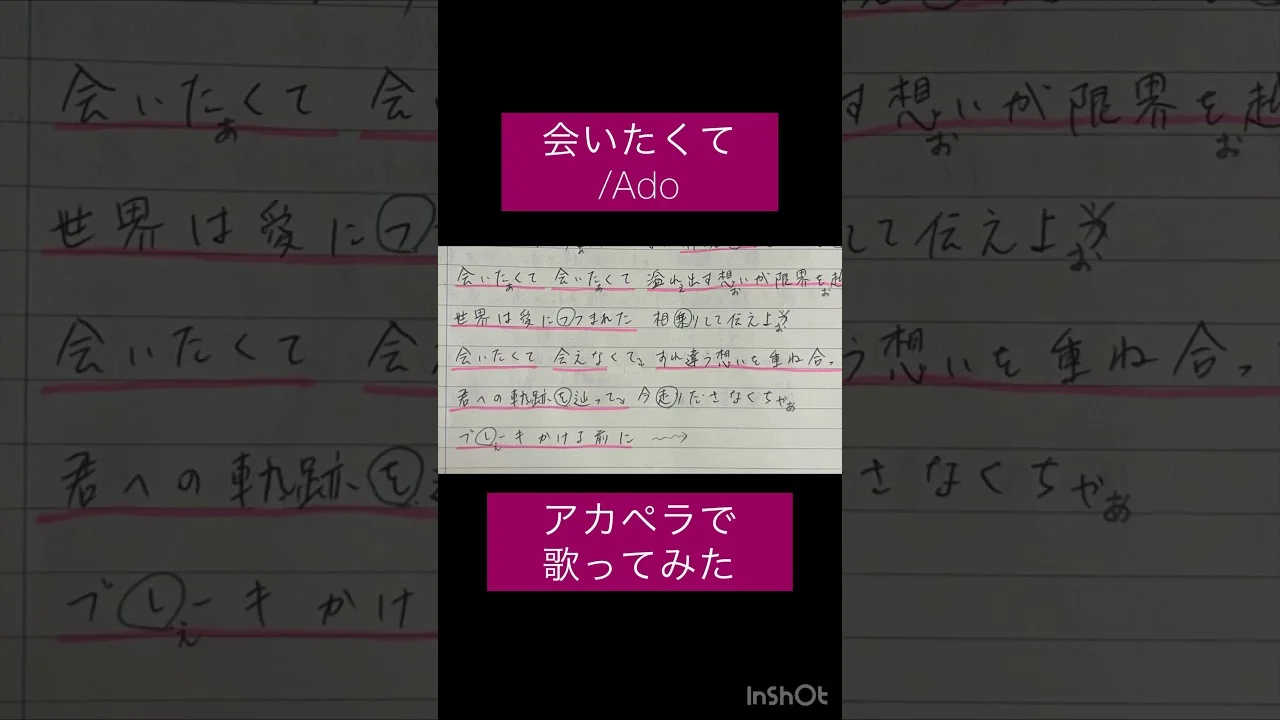 会いたくて
/Ado
会いたくて 会いたくて 溢れ出す想いが限界を越
ぁ ぁ ぇ ぉ ぉ
世界は愛につつまれた 相乗りして伝え上
ぉ
会いたくて 会えなくて すれ違う想いを重ね合っ
君への軌跡を辿って 今走りださなくちゃぁ
ブレーキかける前に
ぇ
アカペラで
歌ってみた
InShOt